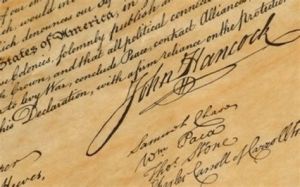 which denounces our
States of America, in
Colonies, solemnly publish and
Crown, and that all political connection
to levy War, conclude Peace, contract Alliances,
his Declaration, with a firm reliance on the Protection
John Hancock
Samuel Chase
Wm Paca
Thos Stone
Charles Carroll of Carrollton